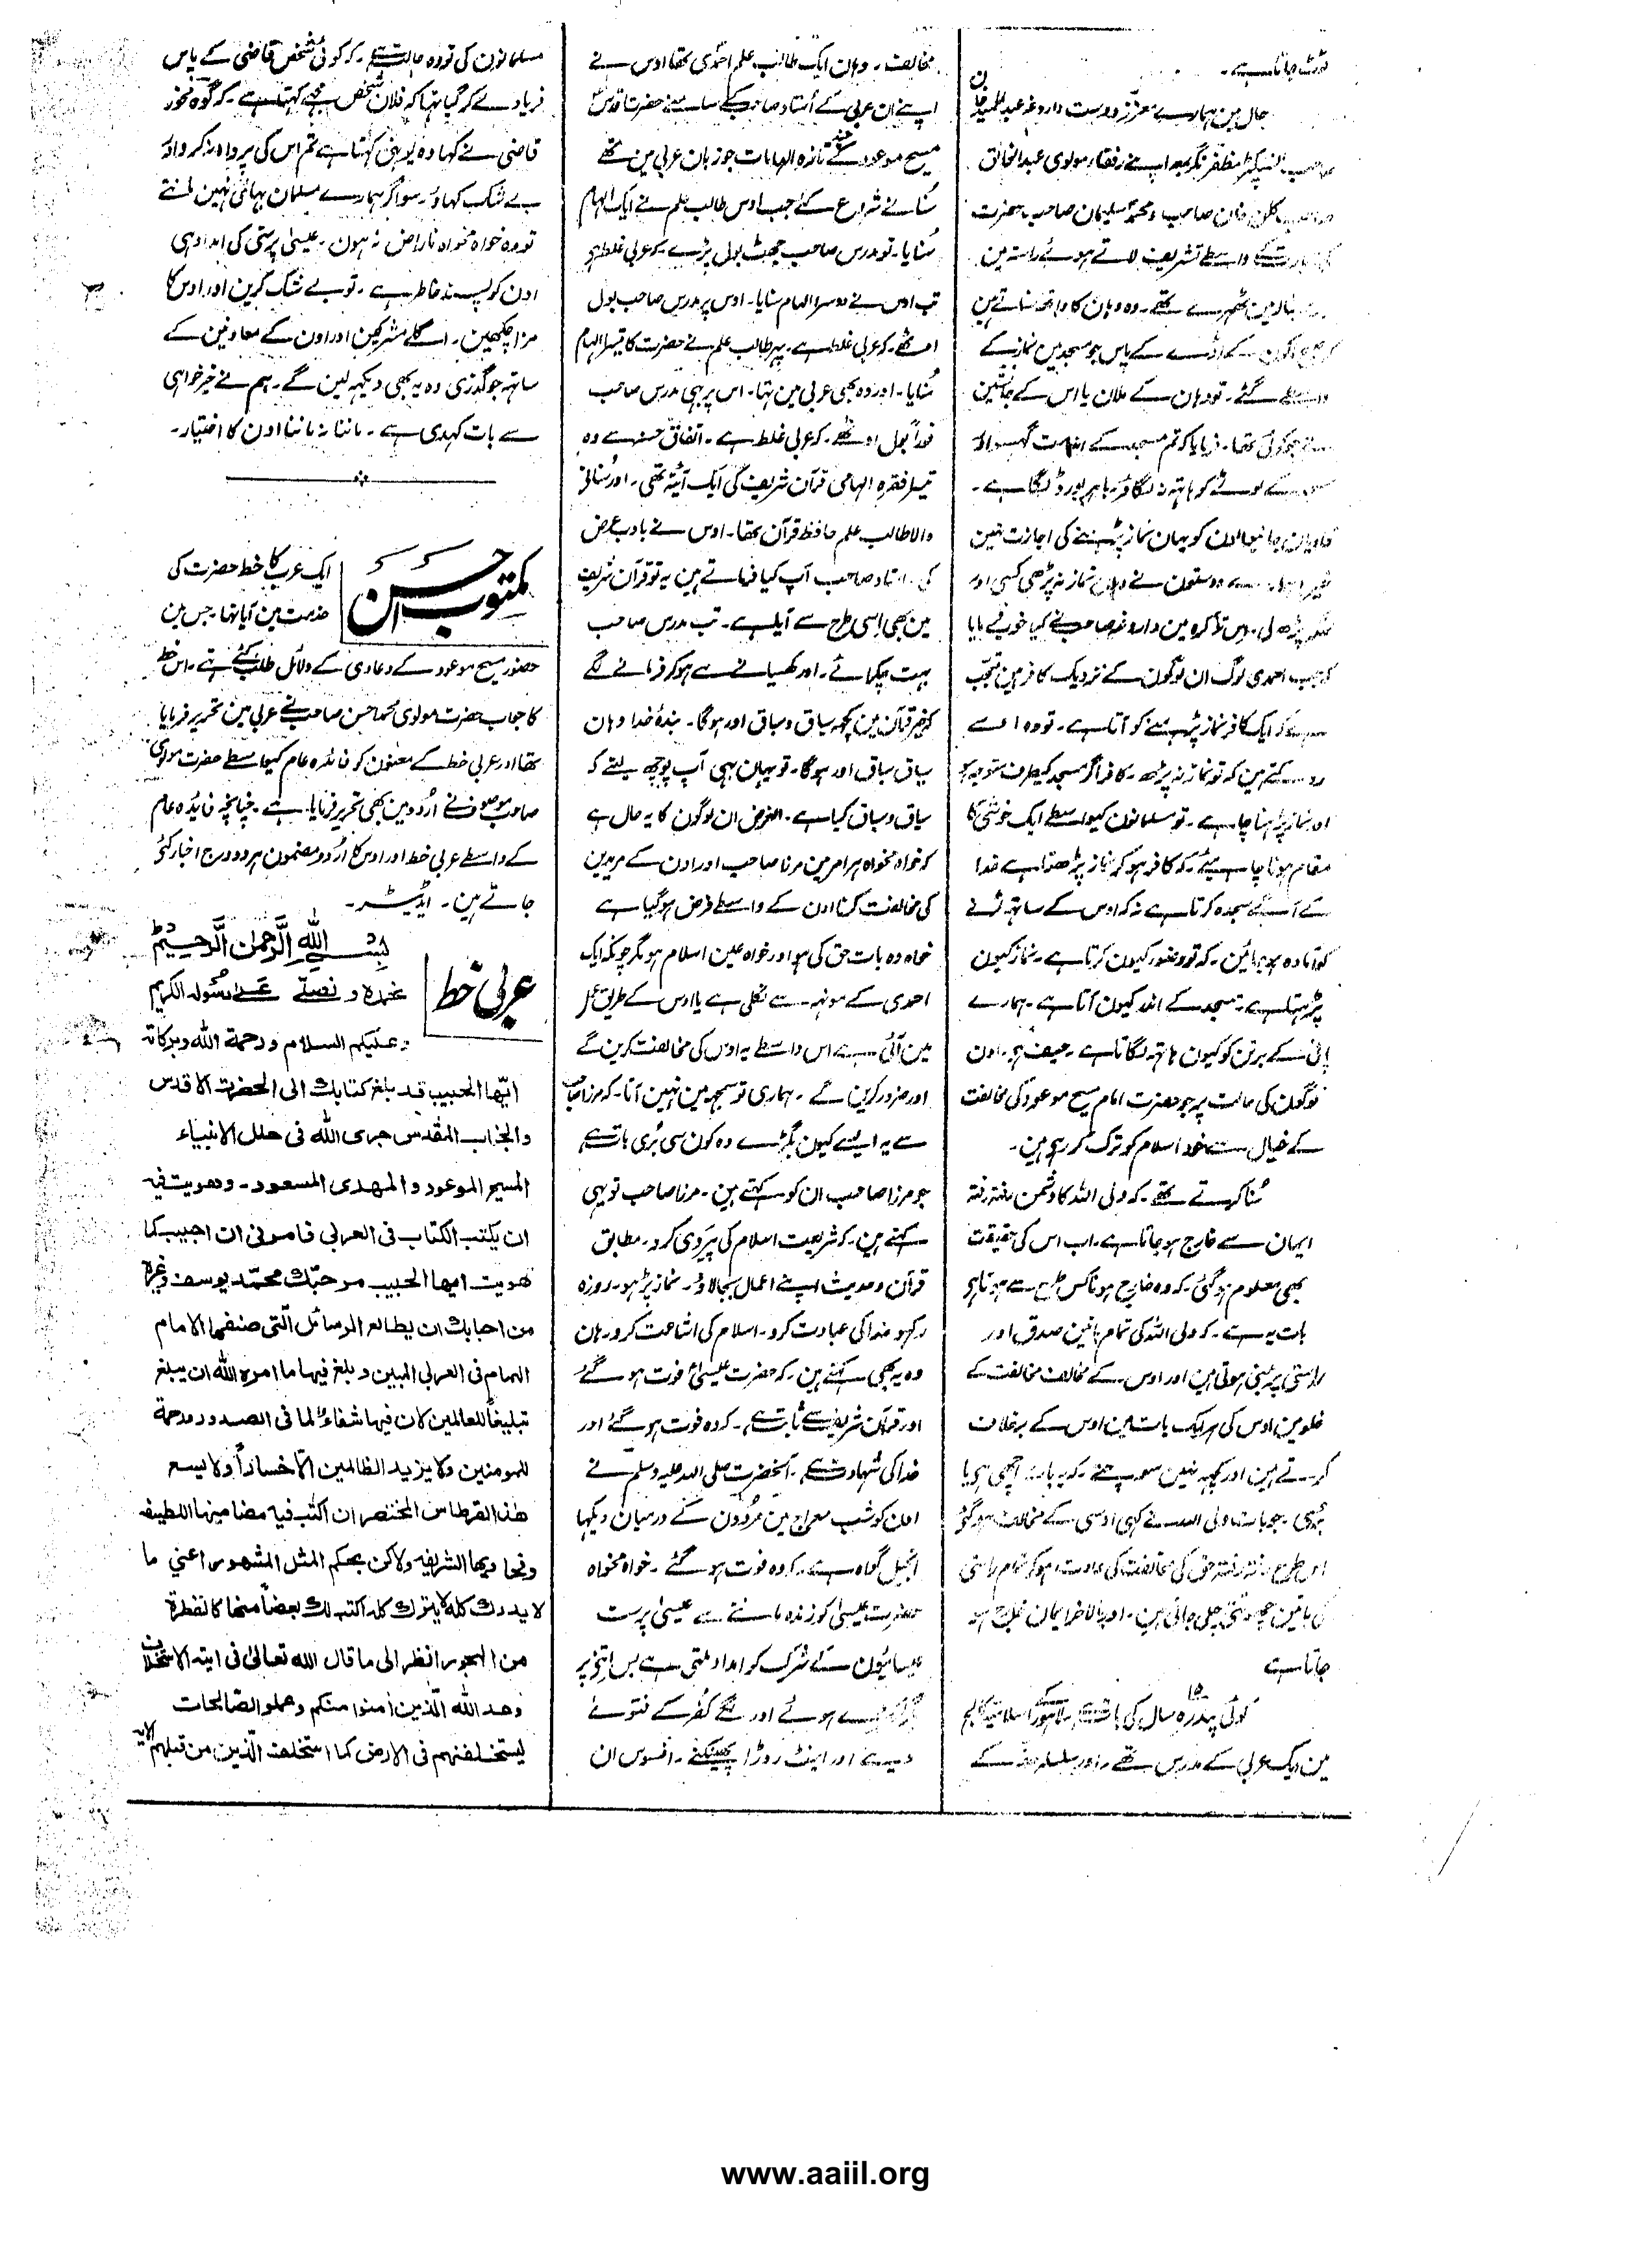 ٹوٹ جاتا ہے۔
حال مین ہمارے معزز دوست داروغہ عبدالحمید خان
صاحب انسپکٹر مظفر نگر بمعہ اپنے رفقاء مولوی عبدالخالق
صاحب کلن خان صاحب و محمد سلیمان صاحب حضرت
کی زیارت کے واسطے تشریف لاتے ہوئے راستہ مین
بٹالہ مین ٹھہرے تھے۔ وہ وہان کا واقعہ سناتے ہین
کہ ہم یکون کے اڈے کے پاس جو مسجد مین نماز کے
واسطے گئے۔ تو وہان کے ملان یا اس کے جانشین
نے جو کوئی تھا۔ فرمایا کہ تم مسجد کے اندر مت گھسو اور
مسجد کے لوٹے کو ہاتھ نہ لگاؤ۔ باہر بورڈ لگا ہے۔
قادیان جانیوالون کو یہان نماز پڑہنے کی اجازت نہین
خیر ہمارے دوستون نے وہان نماز نہ پڑھی کسی اور
جگہ پڑھ لی۔ اس تذکرہ مین داروغہ صاحب نے کیا خوب فرمایا
کہ جب احمدی لوگ ان لوگون کے نزدیک کافر ہین تو تعجب
ہے کہ ایک کافر نماز پڑہنے کو آتا ہے۔ تو وہ اسے
روکتے ہین کہ تو نماز نہ پڑھ۔ کافر اگر مسجد کیطرف متوجہ ہو
اور نماز پڑہنا چاہے۔ تو مسلمانون کیواسطے ایک خوشی کا
مقام ہونا چاہیئے۔ کہ کافر ہو کر نماز پڑھتا ہے خدا
کے آگے سجدہ کرتا ہے نہ کہ اوس کے ساتھ لڑنے
کو آمادہ ہو جائین۔ کہ تو وضو کیون کرتا ہے۔ نماز کیون
پڑہتا ہے۔ مسجد کے اندر کیون آتا ہے۔ ہمارے
پانی کے برتن کو کیون ہاتھ لگاتا ہے۔ حیف ہے۔ اون
لوگون کی حالت پر جو حضرت امام مسیح موعود کی مخالفت
کے خیال سے خود اسلام کو ترک کر رہے ہین۔
سُنا کرتے تھے۔ کہ ولی اللہ کا دشمن رفتہ رفتہ
ایمان سے خارج ہو جاتا ہے۔ اب اس کی حقیقت
بھی معلوم ہو گئی۔ کہ وہ خارج ہونا کس طرح سے ہوتا ہو
بات یہ ہے۔ کہ ولی اللہ کی تمام باتین صدق اور
راستی پر مبنی ہوتی ہین اور اوس کے مخالف مخالفت کے
غلو مین اوس کی ہر ایک بات مین اوس کے برخلاف
کرتے ہین اور کچھ نہین سوچتے۔ کہ یہ بات اچھی ہی یا
بُری۔ جو بات ولی اللہ نے کہی اوسی کے مخالف ہو گئے
اس طرح رفتہ رفتہ حق کی مخالفت کی عادت ہو کر تمام راستی
کی باتین چھوٹتی چلی جاتی ہین۔ اور بالآخر ایمان خارج ہو
جاتا ہے
کوئی پندرہ سال کی بات ہے لاہور اسلامیہ کالج
مین ایک عربی کے مدرس تھے۔ اور سلسلہ حقہ کے
مخالف۔ وہان ایک طالب علم احمدی تھا اوس نے
اپنے ان عربی کے اُستاد صاحب کے سامنے حضرت اقدس
مسیح موعود کے چند تازہ الہامات جو زبان عربی مین تھے
سُنانے شروع کئے جب اوس طالب علم نے ایک الہام
سُنایا۔ تو مدرس صاحب جھٹ بول پڑے۔ کہ عربی غلط ہو
تب اوس نے دوسرا الہام سنایا۔ اوس پر مدرس صاحب بول
اُٹھے۔ کہ عربی غلط ہے۔ پہر طالب علم نے حضرت کا تیسرا الہام
سُنایا۔ اور وہ بھی عربی مین تہا۔ اس پر بھی مدرس صاحب
فوراً بول اوٹھے۔ کہ عربی غلط ہے۔ اتفاق حسنہ سے وہ
تیسرا فقرہ الہامی قرآن شریف کی ایک آیت تھی۔ اور سُنانے
والا طالب علم حافظ قرآن تھا۔ اوس نے بادب عرض
کی۔ استاد صاحب آپ کیا فرماتے ہین یہ تو قرآن شریف
مین بھی اِسی طرح سے آیا ہے۔ تب مدرس صاحب
بہت چکرائے۔ اور کھسیانے سے ہو کر فرمانے لگے
کہ خیر قرآن مین کچھ سیاق و سباق اور ہوگا۔ بندۂ خدا وہان
سیاق سباق اور ہوگا۔ تو یہان بہی آپ پوچھ لیتے کہ
سیاق و سباق کیا ہے۔ الغرض ان لوگون کا یہ حال ہے
کہ خواہ نخواہ ہر امر مین مرزا صاحب اور اون کے مریدین
کی مخالفت کرنا اون کے واسطے فرض ہو گیا ہے
خواہ وہ بات حق کی ہو اور خواہ عین اسلام ہو مگر چونکہ ایک
احمدی کے مونہہ سے نکلی ہے یا اوس کے طریق عمل
مین آئی ہے اس واسطے یہ اوس کی مخالفت کرین گے
اور ضرور کرین گے۔ ہماری تو سمجھ مین نہین آتا۔ کہ مرزا صاحب
سے یہ ایسے کیون بگڑے وہ کون سی بُری بات ہے
جو مرزا صاحب ان کو کہتے ہین۔ مرزا صاحب تو یہی
کہتے ہین۔ کہ شریعت اسلام کی پیروی کرو۔ مطابق
قرآن و حدیث اپنے اعمال بجا لاؤ۔ نماز پڑہو۔ روزہ
رکہو خدا کی عبادت کرو۔ اسلام کی اشاعت کرو۔ ہان
وہ یہ بھی کہتے ہین۔ کہ حضرت عیسیٰؑ فوت ہو گئے
اور قرآن شریف سے ثابت ہے۔ کہ وہ فوت ہو گئے اور
خدا کی شہادت ہے۔ آنحضرت صلی اللہ علیہ وسلم نے
اون کو شب معراج مین مُردون کے درمیان دیکہا
انجیل گواہ ہے۔ کہ وہ فوت ہو گئے۔ خواہ مخواہ
حضرت عیسیٰ کو زندہ ماننے سے عیسیٰ پرست
عیسائیون کے شرک کو امداد ملتی ہے بس اتنی پر
بگڑ بیٹھے ہوئے اور لگے کُفر کے فتوے
دینے اور اینٹ روڑا پھینکنے۔ افسوس ان
مسلمانون کی تو وہ حالت ہے۔ کہ کوئی شخص قاضی کے پاس
فریاد لے کر گیا تہا کہ فلان شخص مجھے کہتا ہے۔ کہ گوہ نخور
قاضی نے کہا وہ یوہنی کہتا ہے تم اس کی پرواہ نہ کرو اور
بے شک کھاؤ۔ سو اگر ہمارے مسلمان بہائی نہین مانتے
تو وہ خواہ مخواہ ناراض نہ ہون۔ عیسیٰ پرستی کی امداد ہی
اون کو پسند خاطر ہے۔ تو بے شک کرین اور اوس کا
مزا چکھین۔ اگلے مشرکین اور اون کے معاونین کے
ساتھ جو گذری وہ یہ بھی دیکہہ لین گے۔ ہم نے خیر خواہی
سے بات کہدی ہے۔ ماننا نہ ماننا اون کا اختیار۔
مکتوب احسن
ایک عرب کا خط حضرت کی
خدمت مین آیا تہا۔ جس مین
حضور مسیح موعود کے دعاوی کے دلائل طلب کئے تھے۔ اس خط
کا جواب حضرت مولوی محمد احسن صاحب نے عربی مین تحریر فرمایا
تھا اور عربی خط کے مضمون کو فائدہ عام کیواسطے حضرت مولوی
صاحب موصوف نے اُردو مین بھی تحریر فرمایا ہے۔ چنانچہ فایدہ عام
کے واسطے عربی خط اور اوس کا اُردو مضمون ہر دو درج اخبار کئے
جاتے ہین۔ ایڈیٹر۔
عربی خط
بِسْمِ اللهِ الرَّحْمٰنِ الرَّحِيْمِ
نحمدہ و نصلے علےٰ رسُولہ الکریم
وعلیکم السلام ورحمة الله وبرکاته
ایّها الحبیب قد بلغ کتابك الی الحضرت الاقدس
والجناب المقدس جری الله فی حلل الانبیاء
المسیح الموعود والمهدی المسعود۔ وهویت فیه
ان یکتب الکتاب فی العربی فامرنی ان اجیب کما
هویت ایها الحبیب مرحبّك محمّد یوسف وغیرہ
من احبابك ان یطالع الرسائل الّتی صنفها الامام
الهمام فی العربی المبین و بلغ فیها ما امره الله ان یبلغ
تبلیغاً للعالمین کان فیها شفاءً لما فی الصدور ورحمة
للمومنین ولا یزید الظالمین الّا خساراً ولا یسع
هٰذا القرطاس المختصر ان اکتب فیه مضامینها اللطیفه
ونحاویها الشریفه ولاکن بحکم المثل المشهور اعنی ما
لا یدرك کله لا یترك کله اکتب لك بعضاً منها کالقطرة
من البحور انظر الی ما قال الله تعالیٰ فی ایته الاستخلاف
وعد الله الّذین اٰمنوا منکم وعملو الصّالحات
لیستخلفنهم فی الارض کما استخلف الّذین من قبلهم الایه
www.aaiil.org